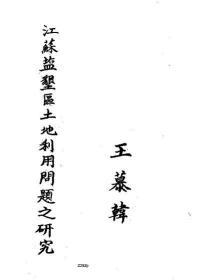 江蘇盐墾區土地利用問題之研究
王慕韓